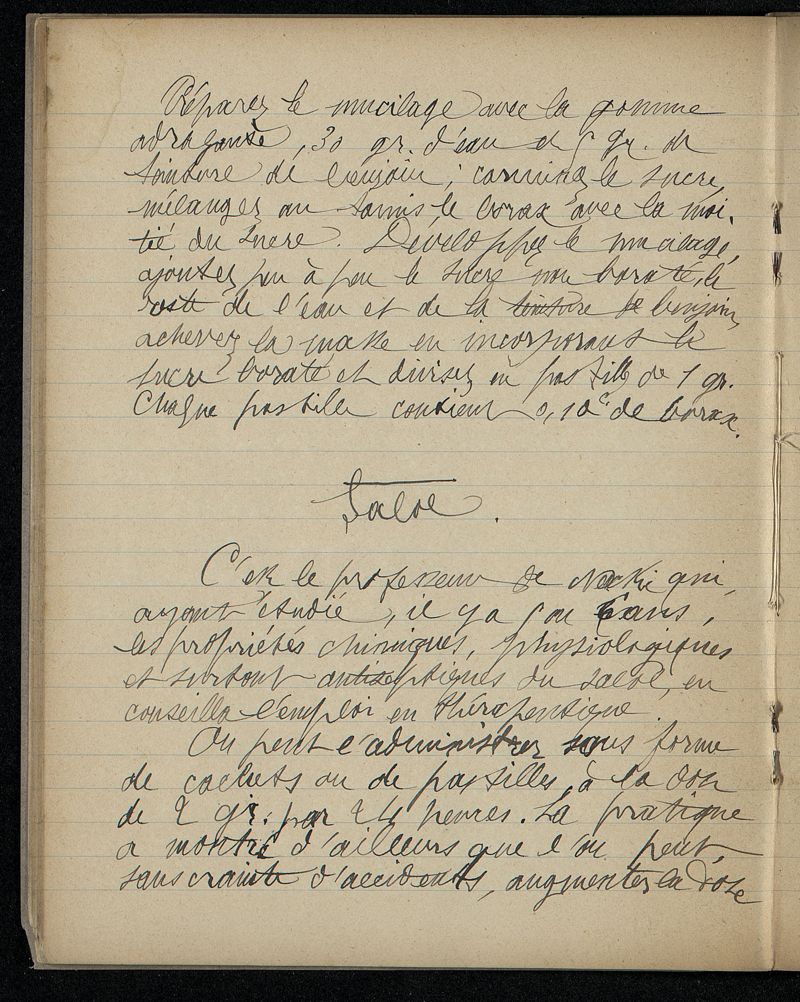 Préparez le mucilage avec la gomme
adragante, 30 gr. d'eau et 5 gr. de
teinture de benjoin; carminez le sucre,
mélangez au tamis le borax avec la moi-
tié du sucre. Développez le mucilage,
ajoutez peu à peu le sucre non boraté, le
reste de l'eau et de la teinture de benjoin,
achevez la masse en incorporant le
sucre boraté et divisez en pastilles de 1 gr.
Chaque pastille contient 0,10c. de borax.
Salol.
C'est le professeur de Necki qui,
ayant étudié, il y a 5 ou 6 ans,
les propriétés chimiques, physiologiques
et surtout antiseptiques du salol, en
conseilla l'emploi en thérapeutique.
On peut l'administrer sous forme
de cachets ou de pastilles, à la dose
de 2 gr. par 24 heures. La pratique
a montré d'ailleurs que l'on peut,
sans crainte d'accidents, augmenter la dose